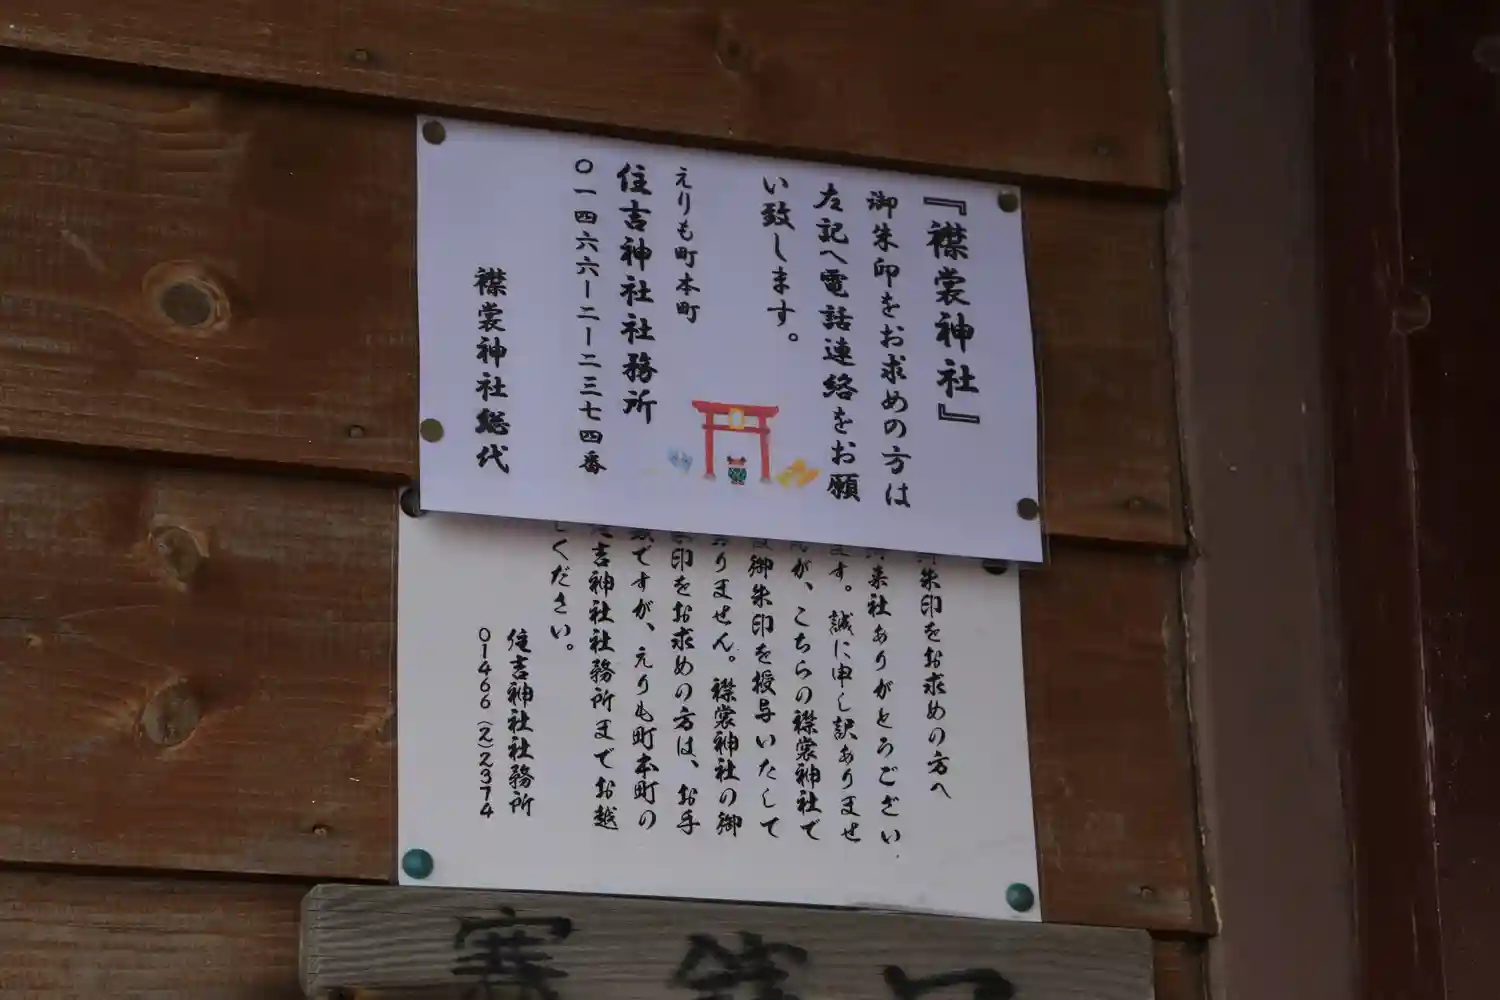 『襟裳神社』
御朱印をお求めの方は
左記へ電話連絡をお願
い致します。
えりも町本町
住吉神社社務所
〇一四六六ー二ー二三七四番
襟裳神社総代
朱印をお求めの方へ
来社ありがとうござい
ます。誠に申し訳ありませ
んが、こちらの襟裳神社で
は御朱印を授与いたして
おりません。襟裳神社の御
朱印をお求めの方は、お手
数ですが、えりも町本町の
住吉神社社務所までお越
しください。
住吉神社社務所
01466(2)2374